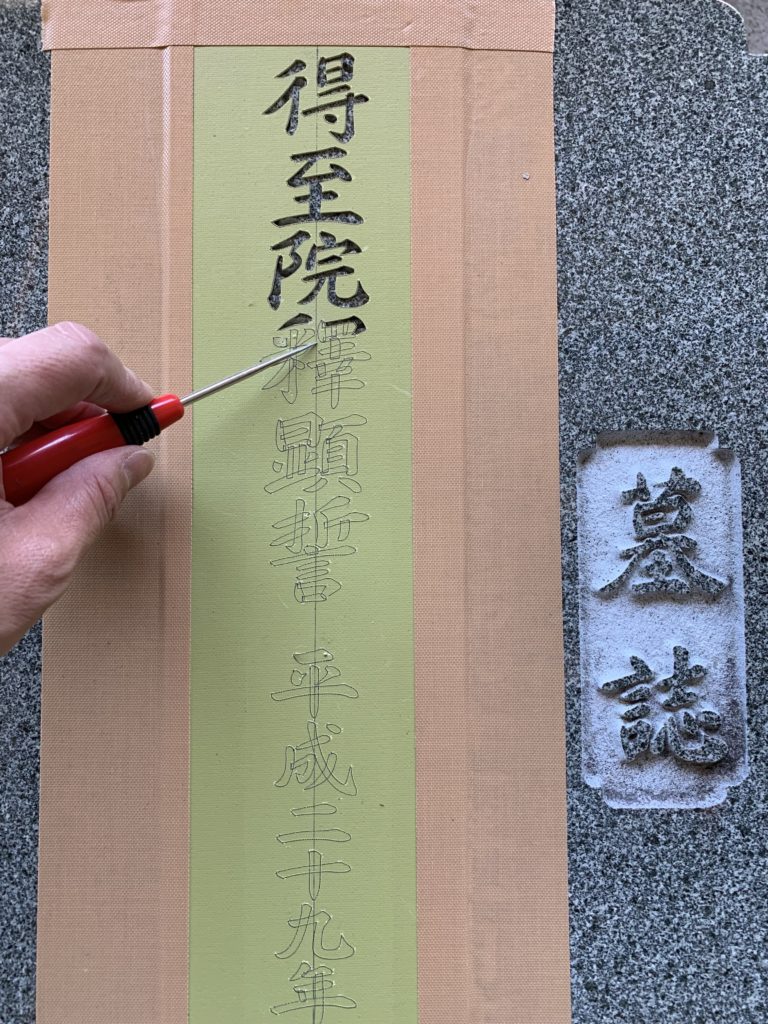 墓誌
得至院釋顯誓 平成二十九年